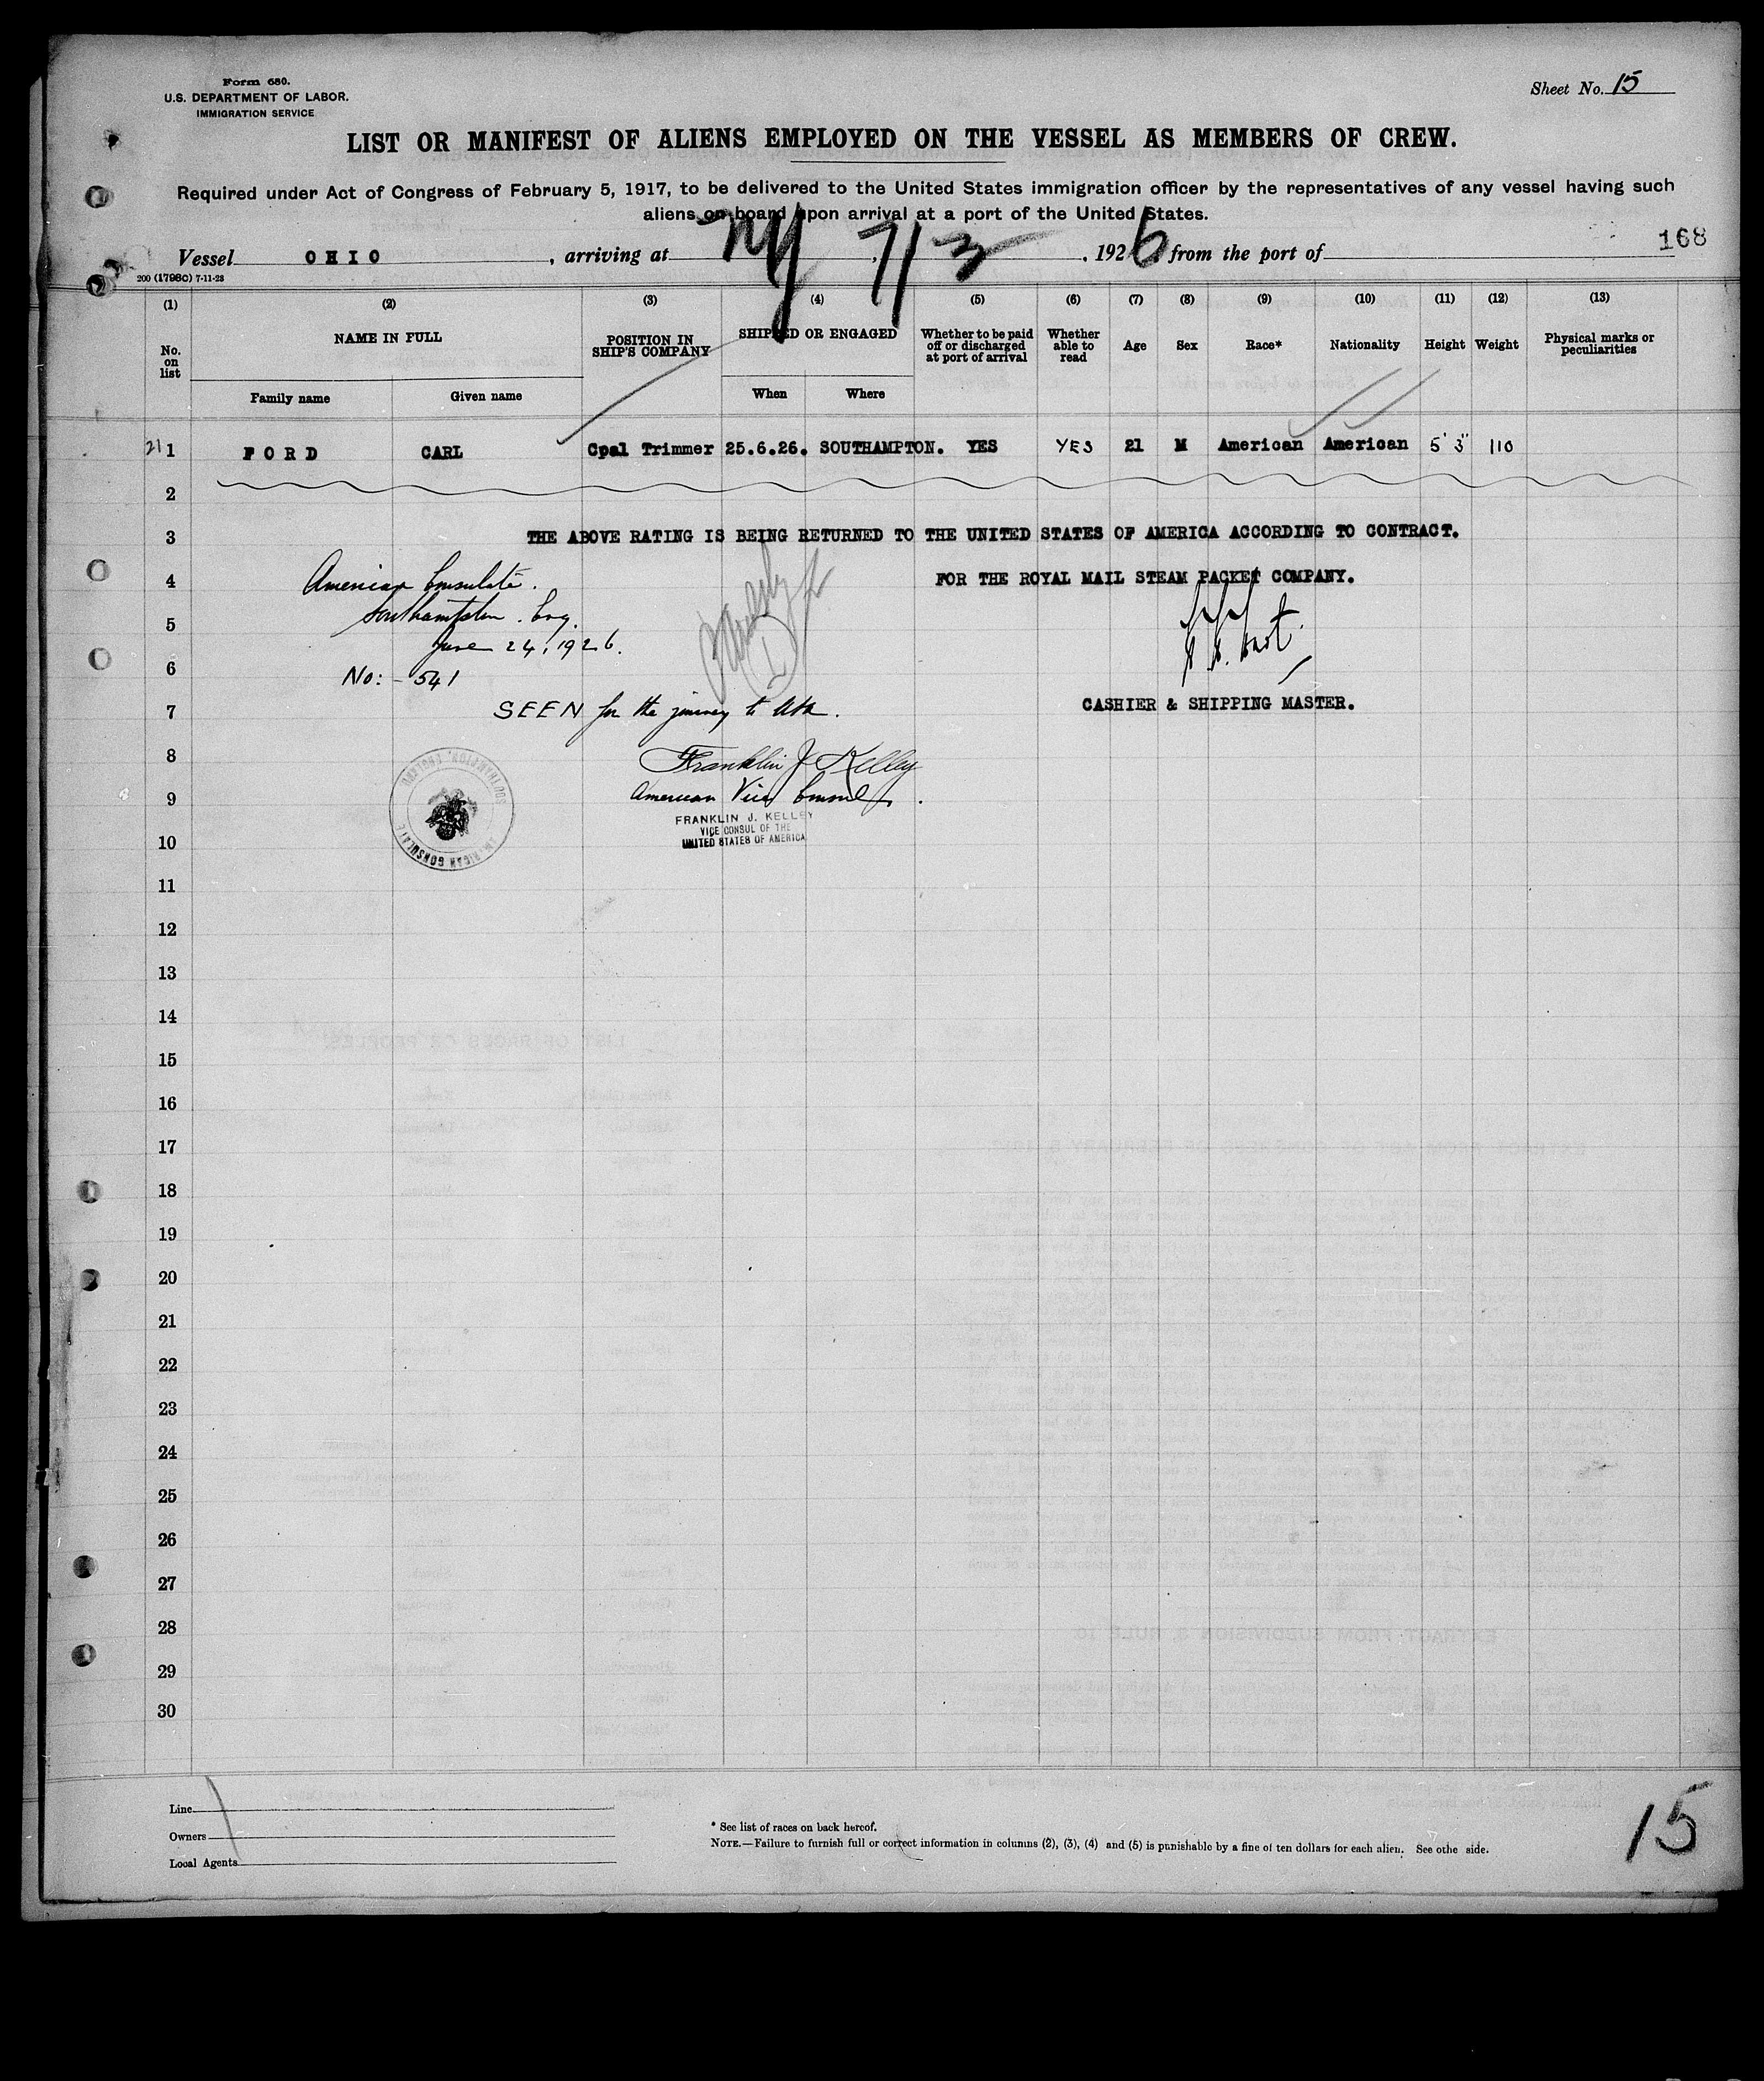 Form 680.
U.S. DEPARTMENT OF LABOR.
IMMIGRATION SERVICE
Sheet No. 15
LIST OR MANIFEST OF ALIENS EMPLOYED ON THE VESSEL AS MEMBERS OF CREW.
Required under Act of Congress of February 5, 1917, to be delivered to the United States immigration officer by the representatives of any vessel having such
aliens on board upon arrival at a port of the United States.
168
Vessel OHIO, arriving at NY, 7/3, 1926 from the port of
200 (1798C) 7-11-23
(1) (2) (3) (4) (5) (6) (7) (8) (9) (10) (11) (12) (13)
No. on list NAME IN FULL POSITION IN SHIP'S COMPANY SHIPPED OR ENGAGED Whether to be paid off or discharged at port of arrival Whether able to read Age Sex Race* Nationality Height Weight Physical marks or peculiarities
Family name Given name When Where
21 1 FORD CARL Cpal Trimmer 25.6.26. SOUTHAMPTON. YES YES 21 M American American 5' 3" 110
2
3 THE ABOVE RATING IS BEING RETURNED TO THE UNITED STATES OF AMERICA ACCORDING TO CONTRACT.
4 American Consulate. FOR THE ROYAL MAIL STEAM PACKET COMPANY.
5 Southampton. Eng.
June 24, 1926.
6 No: - 541
7 SEEN for the journey to USA. CASHIER & SHIPPING MASTER.
8 Franklin J Kelley
9 American Vice Consul.
FRANKLIN J. KELLEY
VICE CONSUL OF THE
UNITED STATES OF AMERICA
AMERICAN CONSULATE
SOUTHAMPTON, ENGLAND
10
11
12
13
14
15
16
17
18
19
20
21
22
23
24
25
26
27
28
29
30
Line
Owners
Local Agents
* See list of races on back hereof.
NOTE.—Failure to furnish full or correct information in columns (2), (3), (4) and (5) is punishable by a fine of ten dollars for each alien. See othe side.
15